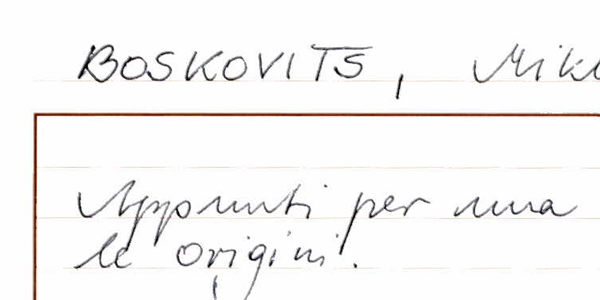 BOSKOVITS, Mikl
Appunti per una
le origini.